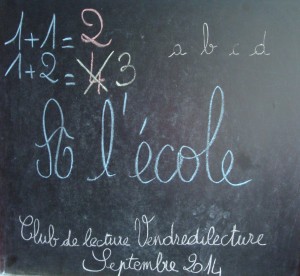 1+1=2 a b c d
1+2=4 3
A l'école
Club de lecture Vendredilecture
Septembre 2014